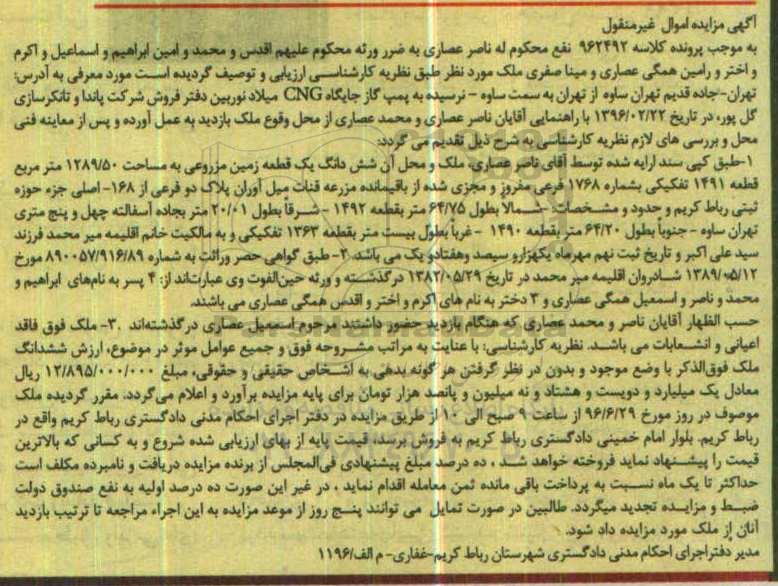 آگهی مزایده اموال غیرمنقول
به موجب پرونده کلاسه ۹۶۲۴۹۲ نفع محکوم له ناصر عصاری به ضرر ورثه محکوم علیهم اقدس و محمد و امین ابراهیم و اسماعیل و اکرم
و اختر و رامین همگی عصاری و مینا صفری ملک مورد نظر طبق نظریه کارشناسی ارزیابی و توصیف گردیده است مورد معرفی به آدرس:
تهران-جاده قدیم تهران ساوه از تهران به سمت ساوه – نرسیده به پمپ گاز جایگاه CNG میلاد نوربین دفتر فروش شرکت پاندا و تانکرسازی
گل پور، در تاریخ ۱۳۹۶/۰۲/۲۲ با راهنمایی آقایان ناصر عصاری و محمد عصاری از محل وقوع ملک بازدید به عمل آورده و پس از معاینه فنی
محل و بررسی های لازم نظریه کارشناسی به شرح ذیل تقدیم می گردد:
۱-طبق کپی سند ارایه شده توسط آقای ناصر عصاری، ملک و محل آن شش دانگ یک قطعه زمین مزروعی به مساحت ۱۲۸۹/۵۰ متر مربع
قطعه ۱۴۹۱ تفکیکی بشماره ۱۷۶۸ فرعی مفروز و مجزی شده از باقیمانده مزرعه قنات میل آوران پلاک دو فرعی از ۱۶۸- اصلی جزء حوزه
ثبتی رباط کریم و حدود و مشخصات -شمالاً بطول ۶۴/۷۵ متر بقطعه ۱۴۹۲ - شرقاً بطول ۲۰/۰۱ متر بجاده آسفالته چهل و پنج متری
تهران ساوه - جنوباً بطول ۶۴/۲۰ متر بقطعه ۱۴۹۰ - غرباً بطول بیست متر بقطعه ۱۳۶۳ تفکیکی و به مالکیت خانم اقلیمه میر محمد فرزند
سید علی اکبر و تاریخ ثبت نهم مهرماه یکهزارو سیصد وهفتادو یک می باشد. ۲- طبق گواهی حصر وراثت به شماره ۸۹۰۰۵۷/۹۱۶/۸۹ مورخ
۱۳۸۹/۰۵/۱۲ شادروان اقلیمه میر محمد در تاریخ ۱۳۸۲/۰۵/۲۹ درگذشته و ورثه حین‌الفوت وی عبارت‌اند از: ۴ پسر به نام‌های ابراهیم و
محمد و ناصر و اسمعیل همگی عصاری و ۳ دختر به نام های اکرم و اختر و اقدس همگی عصاری می باشند.
حسب الظهار آقایان ناصر و محمد عصاری که هنگام بازدید حضور داشتند مرحوم اسمعیل عصاری درگذشته‌اند .۳- ملک فوق فاقد
اعیانی و انشعابات می باشد. نظریه کارشناسی: با عنایت به مراتب مشروحه فوق و جمیع عوامل موثر در موضوع، ارزش ششدانگ
ملک فوق‌الذکر با وضع موجود و بدون در نظر گرفتن هر گونه بدهی به اشخاص حقیقی و حقوقی، مبلغ ۱۲/۸۹۵/۰۰۰/۰۰۰ ریال
معادل یک میلیارد و دویست و هشتاد و نه میلیون و پانصد هزار تومان برای پایه مزایده برآورد و اعلام می‌گردد. مقرر گردیده ملک
موصوف در روز مورخ ۹۶/۶/۲۹ از ساعت ۹ صبح الی ۱۰ از طریق مزایده در دفتر اجرای احکام مدنی دادگستری رباط کریم واقع در
رباط کریم. بلوار امام خمینی دادگستری رباط کریم به فروش برسد. قیمت پایه از بهای ارزیابی شده شروع و به کسانی که بالاترین
قیمت را پیشنهاد نماید فروخته خواهد شد ، ده درصد مبلغ پیشنهادی فی‌المجلس از برنده مزایده دریافت و نامبرده مکلف است
حداکثر تا یک ماه نسبت به پرداخت باقی مانده ثمن معامله اقدام نماید ، در غیر این صورت ده درصد اولیه به نفع صندوق دولت
ضبط و مزایده تجدید میگردد. طالبین در صورت تمایل می توانند پنج روز از موعد مزایده به این اجراء مراجعه تا ترتیب بازدید
آنان از ملک مورد مزایده داد شود.
مدیر دفتراجرای احکام مدنی دادگستری شهرستان رباط کریم-غفاری- م الف/۱۱۹۶